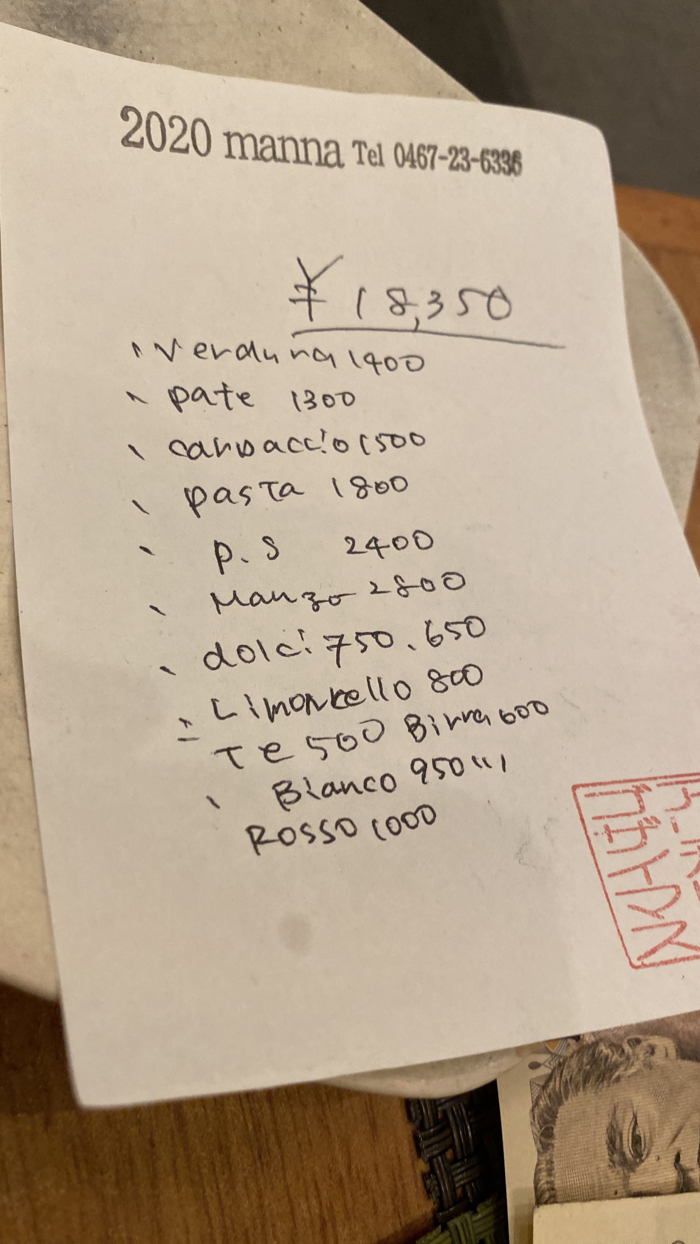 2020 manna Tel 0467-23-6336
¥18,350
、Verdura 1400
、pate 1300
、carpaccio 1500
、pasta 1800
、p.s 2400
、Manzo 2800
、dolci 750、650
、Limoncello 800
Te 500 Birra 600
、Bianco 950 "1
Rosso 1000